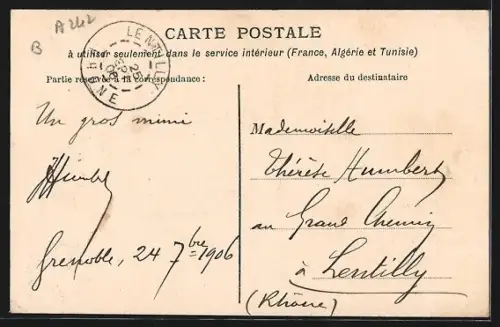 B
A 242
CARTE POSTALE
à utiliser seulement dans le service intérieur (France, Algérie et Tunisie)
Partie réservée à la correspondance :
Adresse du destinataire
LENTILLY
25
RHONE
Un gros mimi
JHumbert
Grenoble, 24 7bre 1906
Mademoiselle
Thérèse Humbert
au Grand Chemin
à Lentilly
(Rhône)